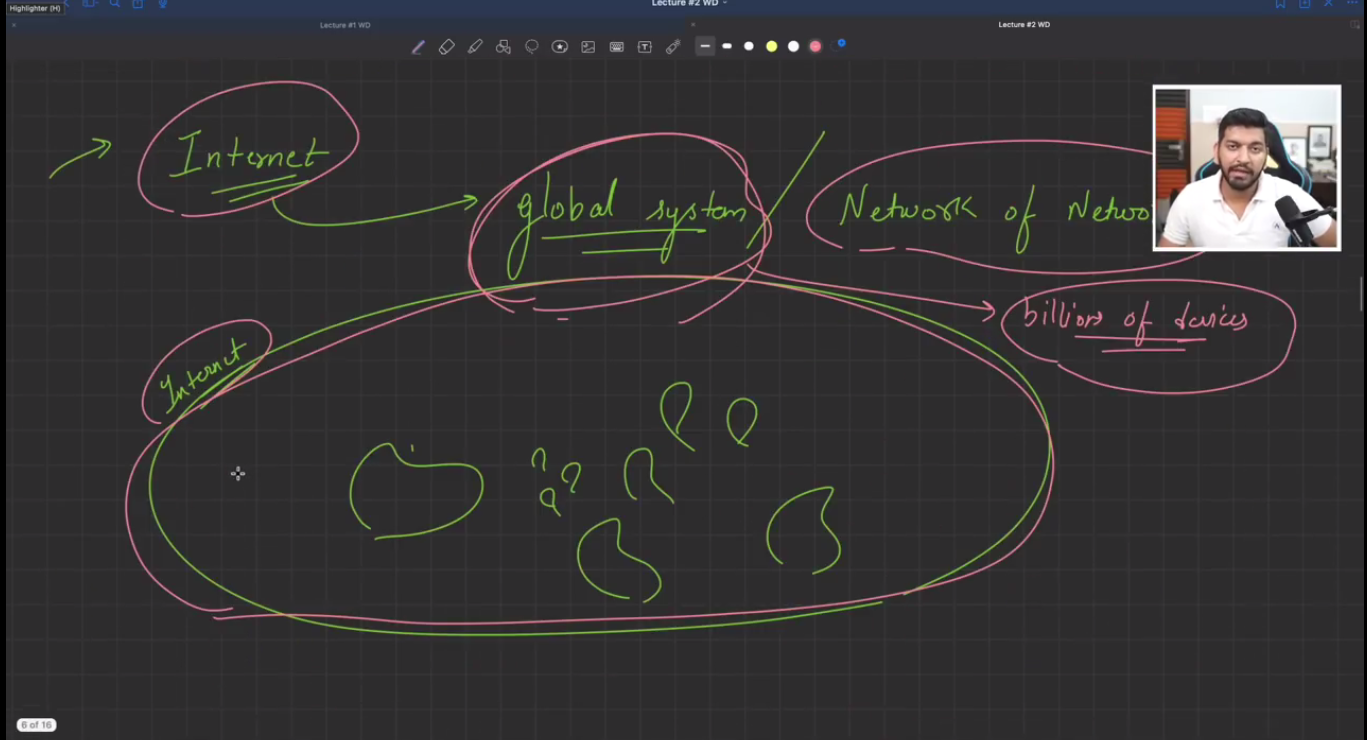 Lecture #2 WD
Highlighter (H)
Lecture #1 WD
Lecture #2 WD
Internet
global system
Network of Netwo
billions of devices
Internet
6 of 16